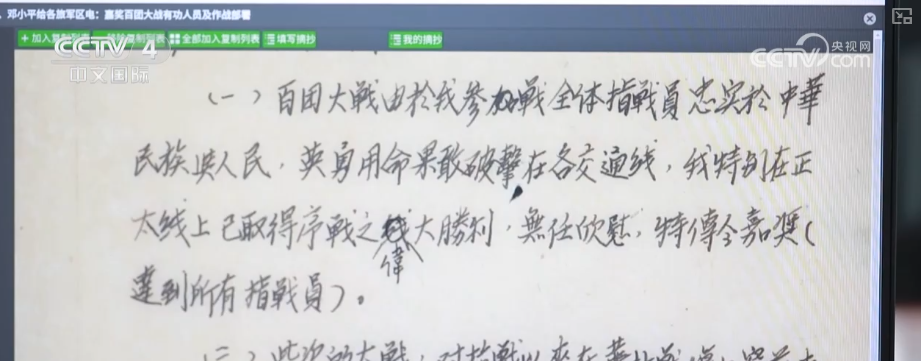 邓小平给各旅军区电：嘉奖百团大战有功人员及作战部署
+ 加入复制列表 移除复制列表 全部加入复制列表 填写摘抄 我的摘抄
CCTV 4
中文国际
央视网
CCTV.com
（一）百团大戰由於我参加戰全体指戰員忠实於中華
民族与人民，英勇用命果敢破擊在各交通线，我特别在正
太线上已取得序戰之偉大勝利，無任欣慰，特傳令嘉奖（
達到所有指戰員）。
（二）此次的大戰，对抗戰以來在華北戰